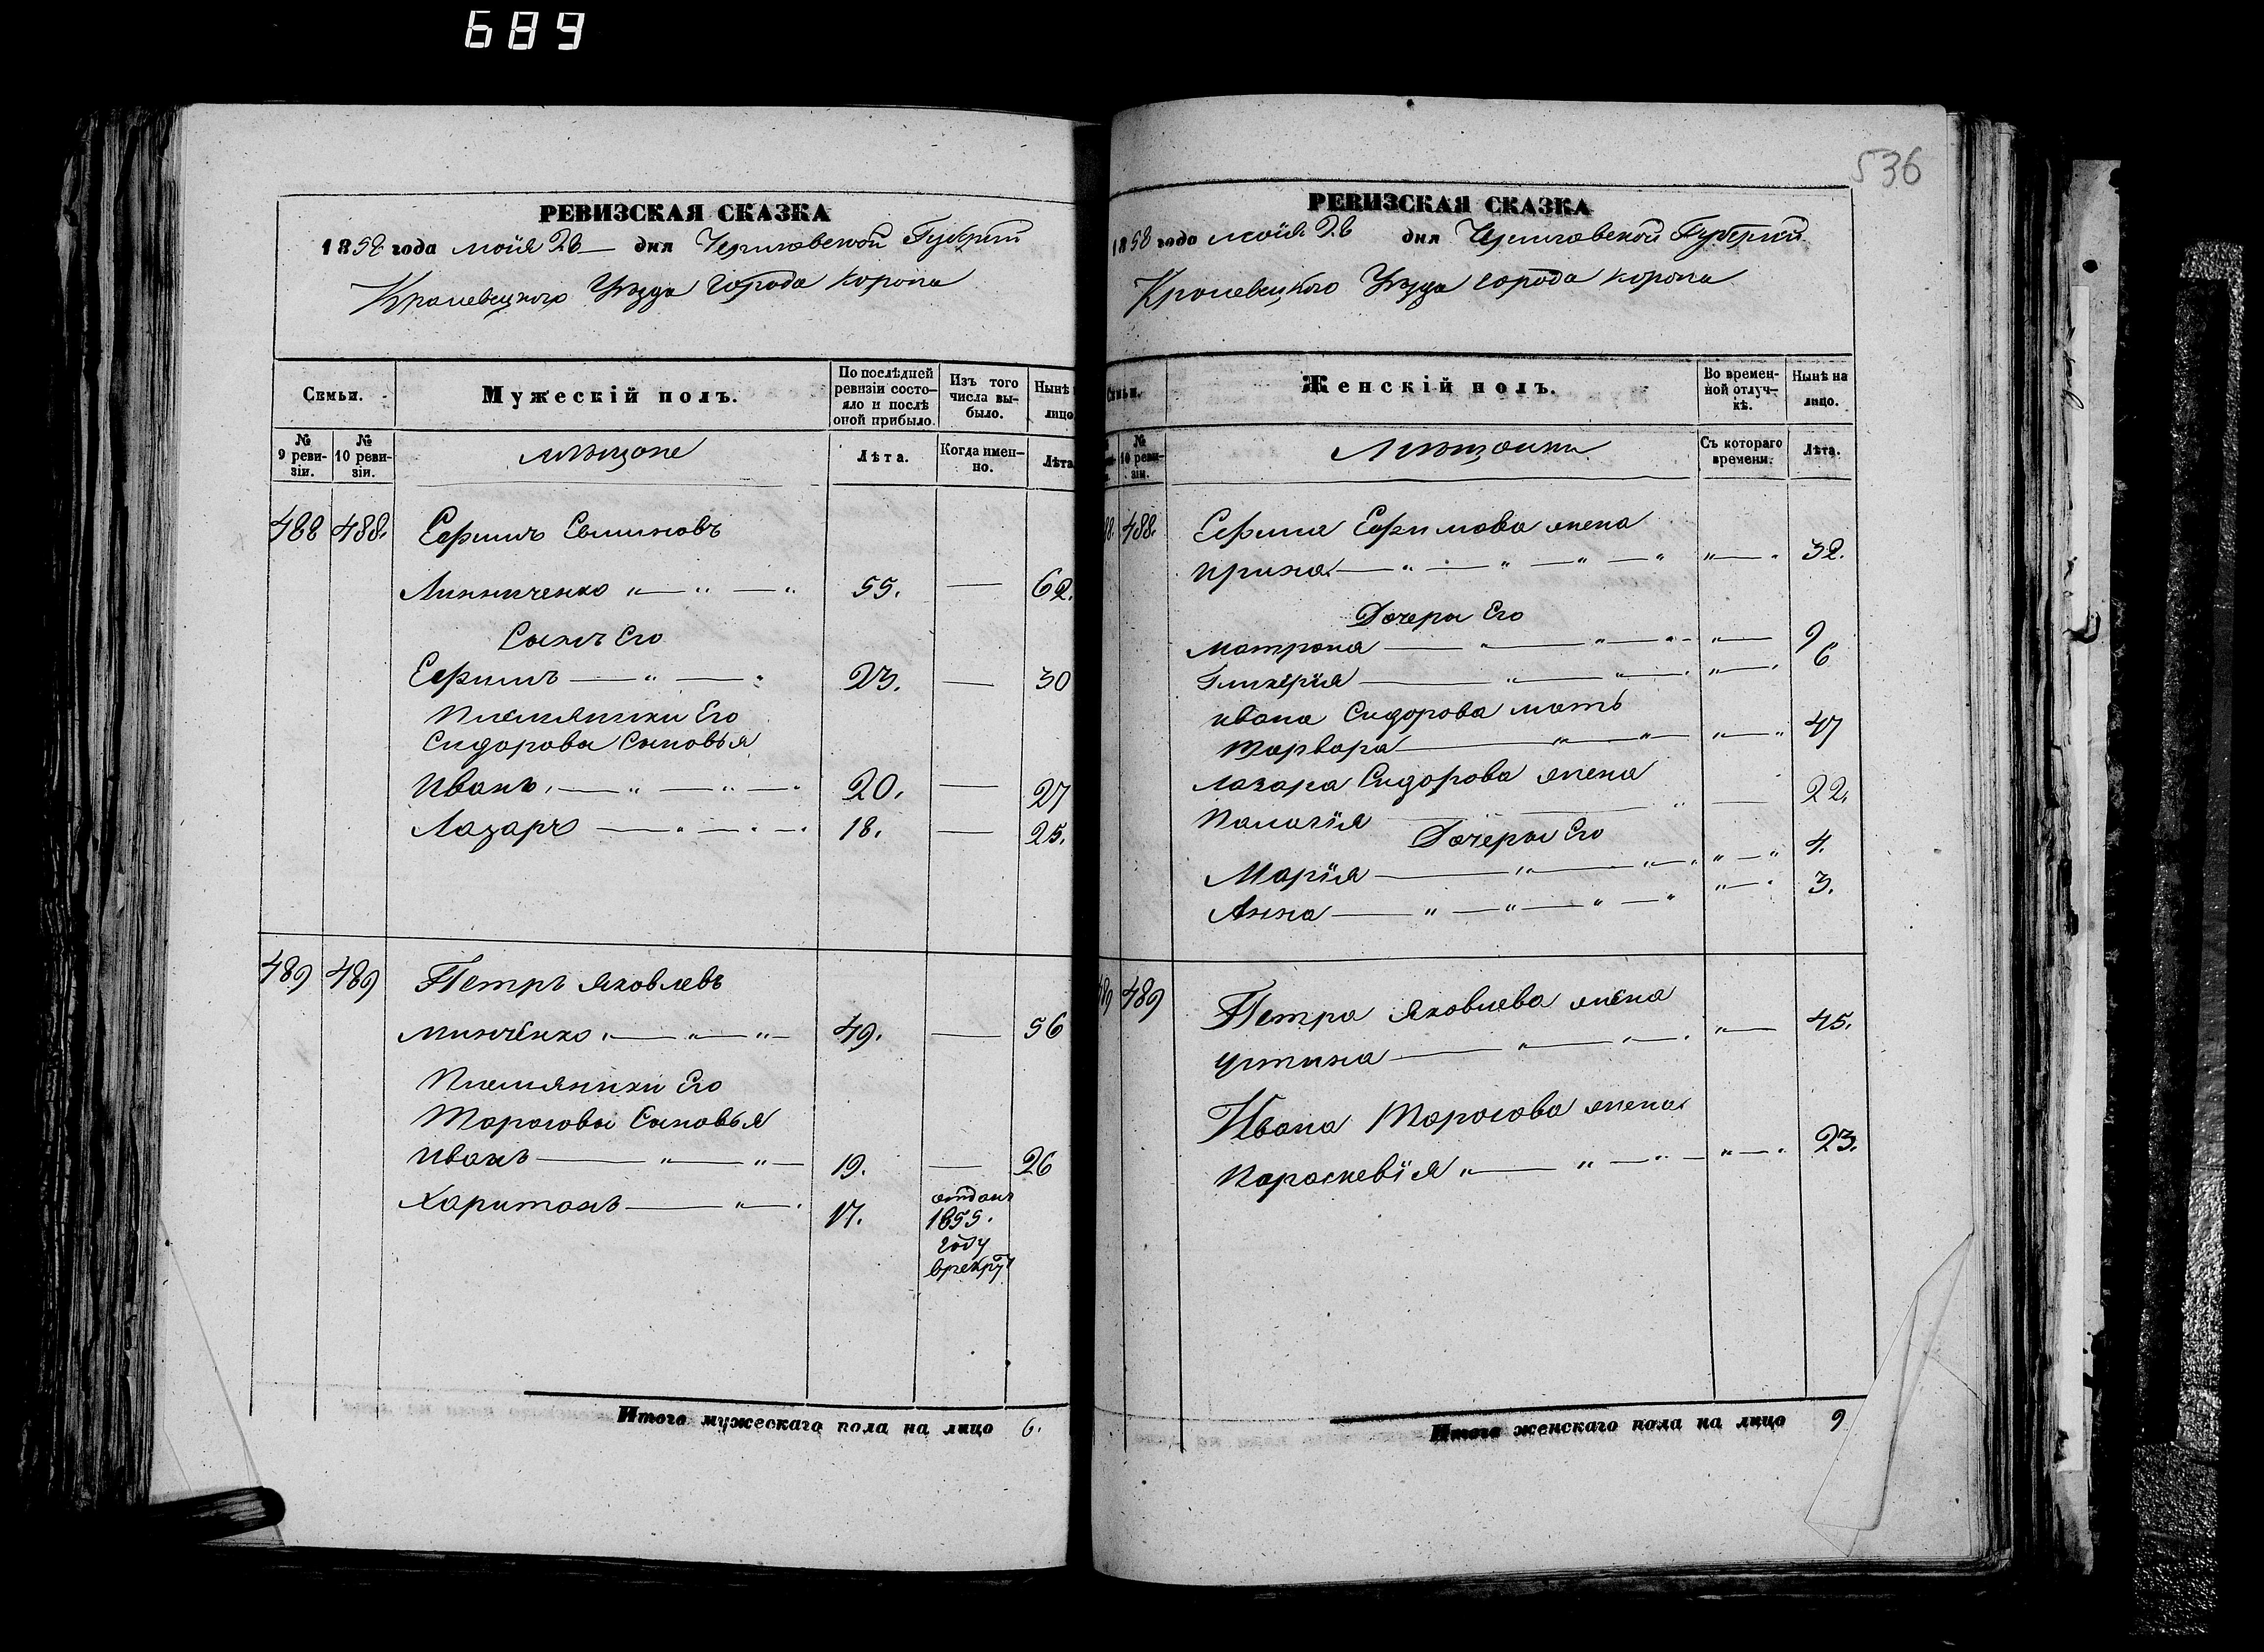 689
РЕВИЗСКАЯ СКАЗКА
1858 года мая 28 дня Черниговской Губернии
Кролевецкого Уезда города Коропа
Семьи.
Мужескій полъ.
По послѣдней ревизіи состо-
яло и послѣ
оной прибыло.
Изъ того
числа вы-
было.
Нынѣ
лицо
№
9 реви-
зіи.
№
10 реви-
зіи.
мѣщане
Лѣта.
Когда имен-
но.
Лѣта
488 488. Ефимъ
Линниченко 55. 62.
Сынъ Его
Ефимъ 23. 30
Племянники Его
Сидоровы Сыновья
Иванъ 20. 27
Лазарь 18. 25.
489 489 Петръ Яковлевъ
Минченко 49. 56
Племянники Его
Тарасовы Сыновья
Иванъ 19. 26
Харитонъ 17. отданъ
1855.
году
врекруты
Итого мужескаго пола на лицо 6.
536
РЕВИЗСКАЯ СКАЗКА
1858 года мая 28 дня Черниговской Губернии
Кролевецкого Уезда города Коропа
Семьи.
Женскій полъ.
Во времен-
ной отлуч-
кѣ.
Нынѣ на
лицо.
№
10 реви-
зіи.
Мѣщанки
Съ котораго
времени.
Лѣта.
88. 488. Ефима Ефимова жена
Ирина 32.
Дочери Его
Матрона 9
Гликерія 6
Ивана Сидорова мать
Варвара 47
Лазаря Сидорова жена
Палагія 22.
Дочери Его
Марія 4.
Анна 3.
89 489 Петра Яковлева жена
Устина 45.
Ивана Тарасова жена
Параскевія 23.
Итого женскаго пола на лицо 9